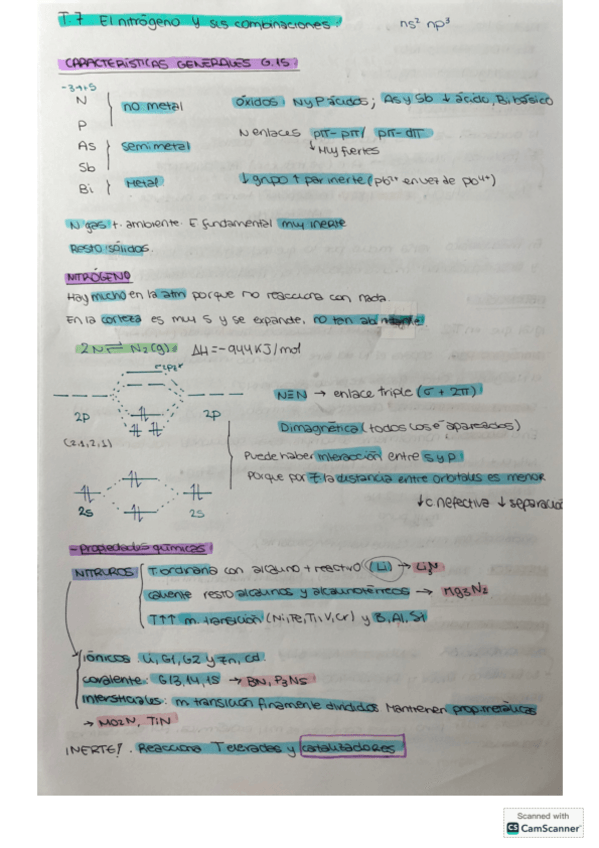 T.7 El nitrógeno y sus combinaciones. ns² np³
CARACTERÍSTICAS GENERALES G.15
-3→+5
N
P
no metal
As
Sb
semimetal
Bi
Metal
óxidos: N y P ácidos; As y Sb ↓ ácido, Bi básico
N enlaces pπ-pπ / pπ-dπ
↓ Muy fuertes
↓ grupo ↑ par inerte (Pb²⁺ en vez de Pb⁴⁺)
N gas t. ambiente. E fundamental muy inerte
Resto sólidos.
NITRÓGENO
Hay mucho en la atm porque no reacciona con nada.
En la corteza es muy S y se expande, no tan
2N ⇌ N₂(g). ΔH=-944KJ/mol
2p 2p
(2,1,2,1)
2s 2s
N≡N → enlace triple (σ + 2π)
Dimagnética (todos los e⁻ apareados)
Puede haber interacción entre s y p
Porque por Z la distancia entre orbitales es menor
↓c nefectiva ↓ separación
- Propiedades químicas
NITRUROS
T ordinaria con alcalino + reactivo (Li) → Li₃N
caliente resto alcalinos y alcalinotérreos → Mg₃N₂
T↑↑ m. transición (Ni, Fe, Ti, V, Cr) y B, Al, Si
iónicos: Li, G1, G2 y Zn, Cd.
covalente: G13, 14, 15 → BN, P₃N₅
Intersticiales: m transición finamente divididos Mantienen prop. metálicas
→ MO2N, TiN
INERTE! . Reacciona T elevadas y catalizadores
Scanned with
CS CamScanner